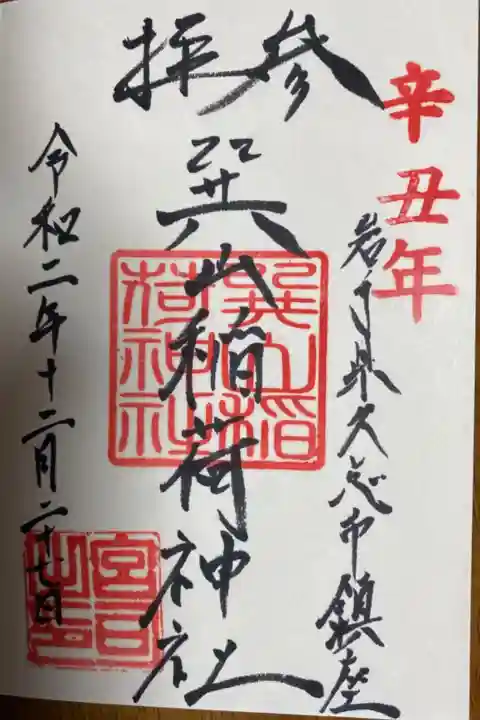 辛丑年
岩手県久慈市鎮座
参拝
巽山稲荷神社
巽山稲荷神社
令和二年十二月二十七日